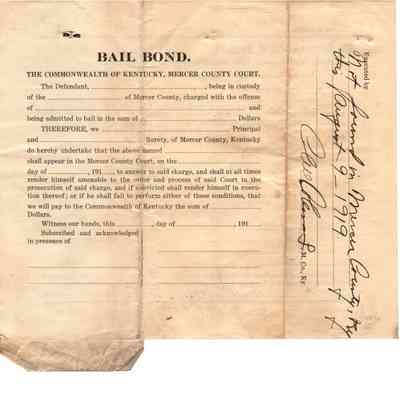 BAIL BOND.
THE COMMONWEALTH OF KENTUCKY, MERCER COUNTY COURT.
The Defendant, , being in custody
of the of Mercer County, charged with the offense
of and
being admitted to bail in the sum of Dollars
THEREFORE, we Principal
and Surety, of Mercer County, Kentucky
do hereby undertake that the above named
shall appear in the Mercer County Court, on the
day of , 191 , to answer to said charge, and shall at all times
render himself amenable to the order and process of said Court in the
prosecution of said charge, and if convicted shall render himself in execu-
tion thereof; or if he shall fail to perform either of these conditions, that
we will pay to the Commonwealth of Kentucky the sum of
Dollars.
Witness our hands, this , day of , 191
Subscribed and acknowledged
in presence of
Executed by
Not found in Mercer County, Ky
this August 9 - 1919
M. Co., Ky.